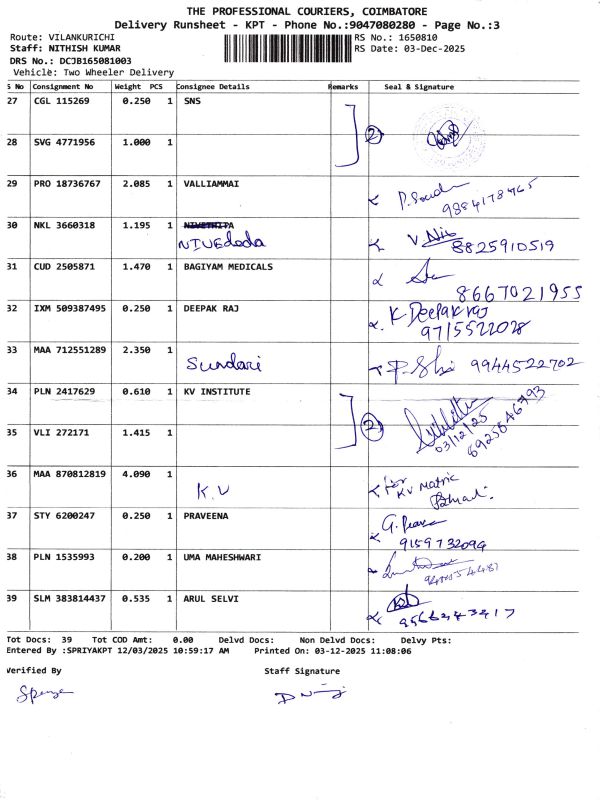 THE PROFESSIONAL COURIERS, COIMBATORE
Delivery Runsheet - KPT - Phone No.:9047080280 - Page No.:3
Route: VILANKURICHI
RS No.: 1650810
Staff: NITHISH KUMAR
RS Date: 03-Dec-2025
DRS No.: DCJB165081003
Vehicle: Two Wheeler Delivery
S No Consignment No Weight PCS Consignee Details Remarks Seal & Signature
27 CGL 115269 0.250 1 SNS
2
28 SVG 4771956 1.000 1
29 PRO 18736767 2.085 1 VALLIAMMAI
9884178465
30 NKL 3660318 1.195 1 NIVETHITA
NIVEdada
8825910519
31 CUD 2505871 1.470 1 BAGIYAM MEDICALS
8667021955
32 IXM 509387495 0.250 1 DEEPAK RAJ
K Deepak raj
9715522028
33 MAA 712551289 2.350 1
Sundari 9944522702
34 PLN 2417629 0.610 1 KV INSTITUTE
2
03/12/25
8925846793
35 VLI 272171 1.415 1
36 MAA 870812819 4.090 1
K.V
for
KV Matric
37 STY 6200247 0.250 1 PRAVEENA
9159732094
38 PLN 1535993 0.200 1 UMA MAHESHWARI
39 SLM 383814437 0.535 1 ARUL SELVI
Tot Docs: 39 Tot COD Amt: 0.00 Delvd Docs: Non Delvd Docs: Delvy Pts:
Entered By :SPRIYAKPT 12/03/2025 10:59:17 AM Printed On: 03-12-2025 11:08:06
Verified By Staff Signature